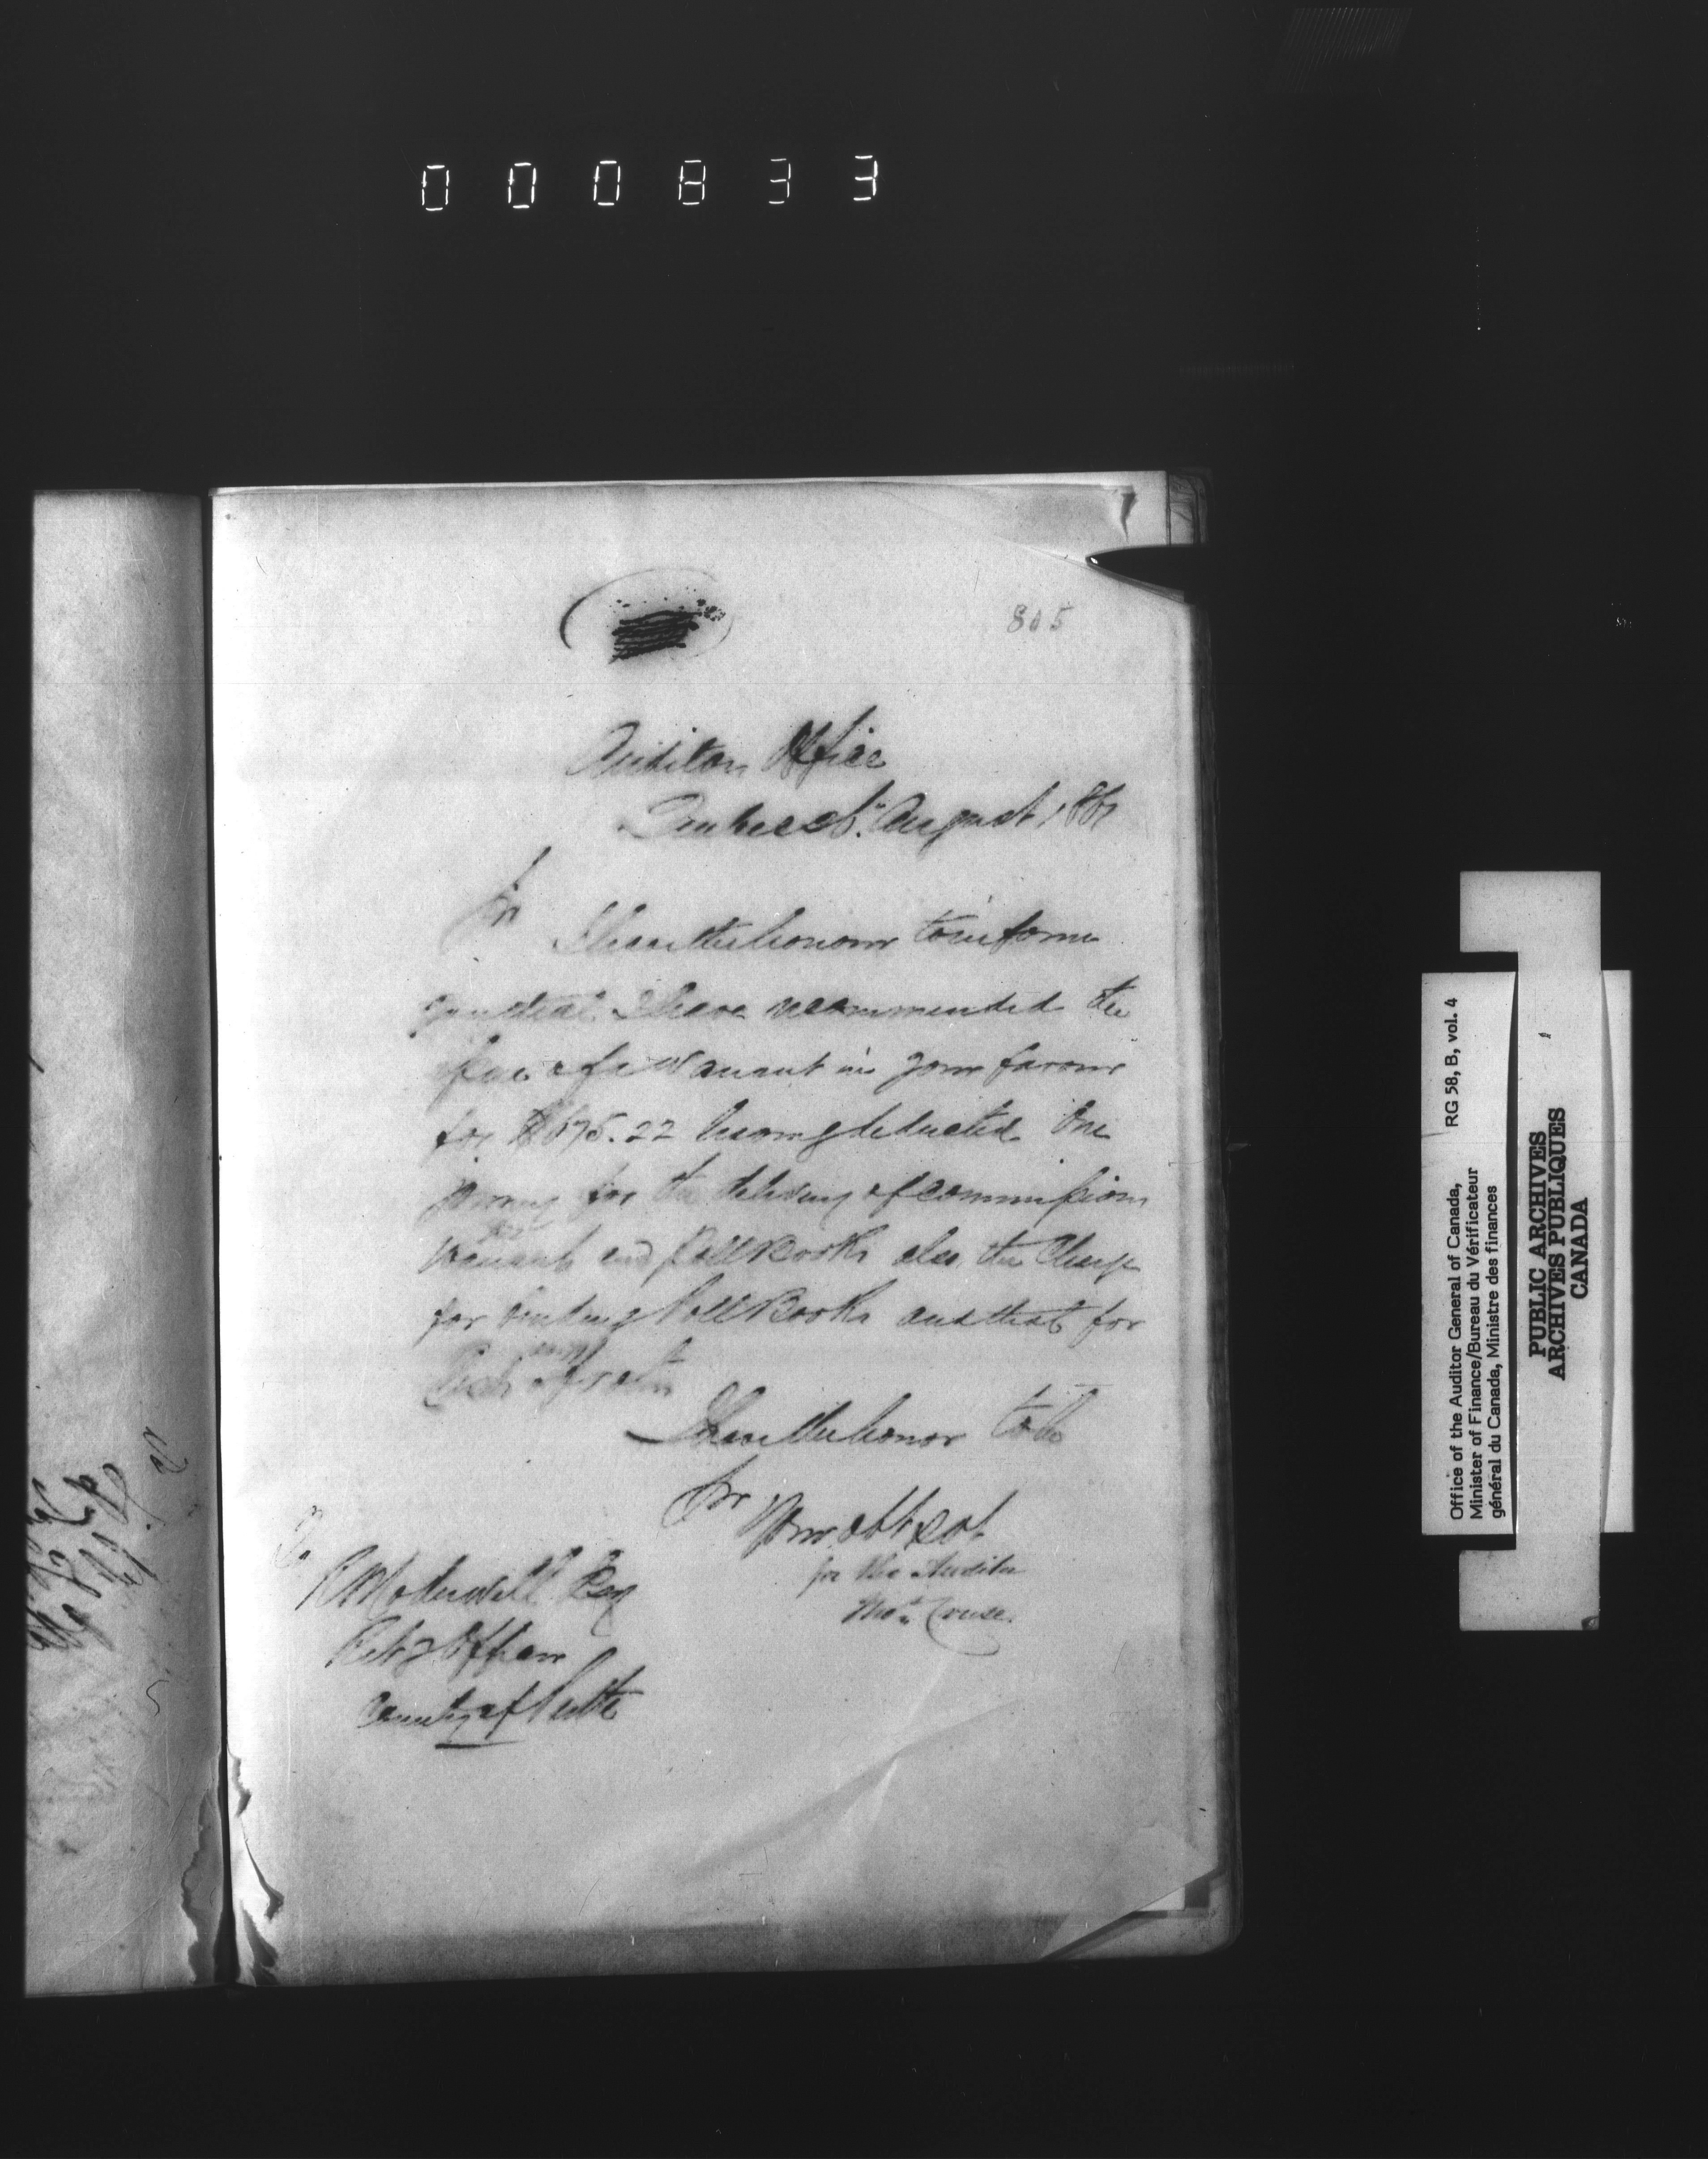 000833
805
Auditors Office
Quebec 6th August 1861
Sir
I have the honour to inform
you that I have recommended the
issue of a Warrant in your favour
for $675.22 having deducted One
for the delivery of commissions
Warrants and Poll Books also the Charge
for binding Poll Books and that for
I have the honor to be
Sir
Your obt sert
for the Auditor
Thos Cruse
To
Moderwell Esq
Retg Officer
County of Perth
Office of the Auditor General of Canada,
Minister of Finance/Bureau du Vérificateur
général du Canada, Ministre des finances
RG 58, B, vol. 4
PUBLIC ARCHIVES
ARCHIVES PUBLIQUES
CANADA